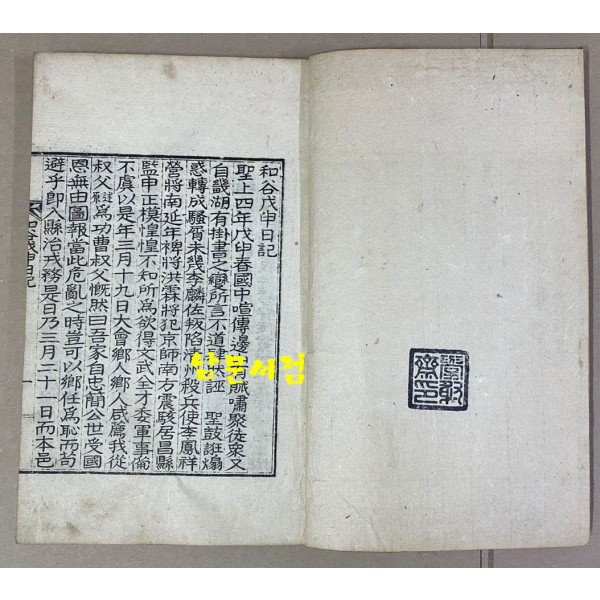 和谷戊申日記
聖上四年戊申春國中喧傳邊 賊嘯聚徒衆又
自畿湖有掛書之變所言不道 誣 聖鼓誑煽
惑轉成騷屑未幾李麟佐叛陷淸州殺兵使李鳳祥
營將南延年裨將洪霖將犯京師南方震駭居昌縣
監申正模惶惶不知所爲欲得文武全才委軍事備
不虞以是年三月十九日大會鄕人鄕人咸薦我從
叔父 爲功曹叔父慨然曰吾家自忠簡公世受國
恩無由圖報當此危亂之時豈可以鄕任爲恥而苟
避乎卽入縣治戎務是日乃三月二十一日而本邑
和谷戊申日記
一
남문서점